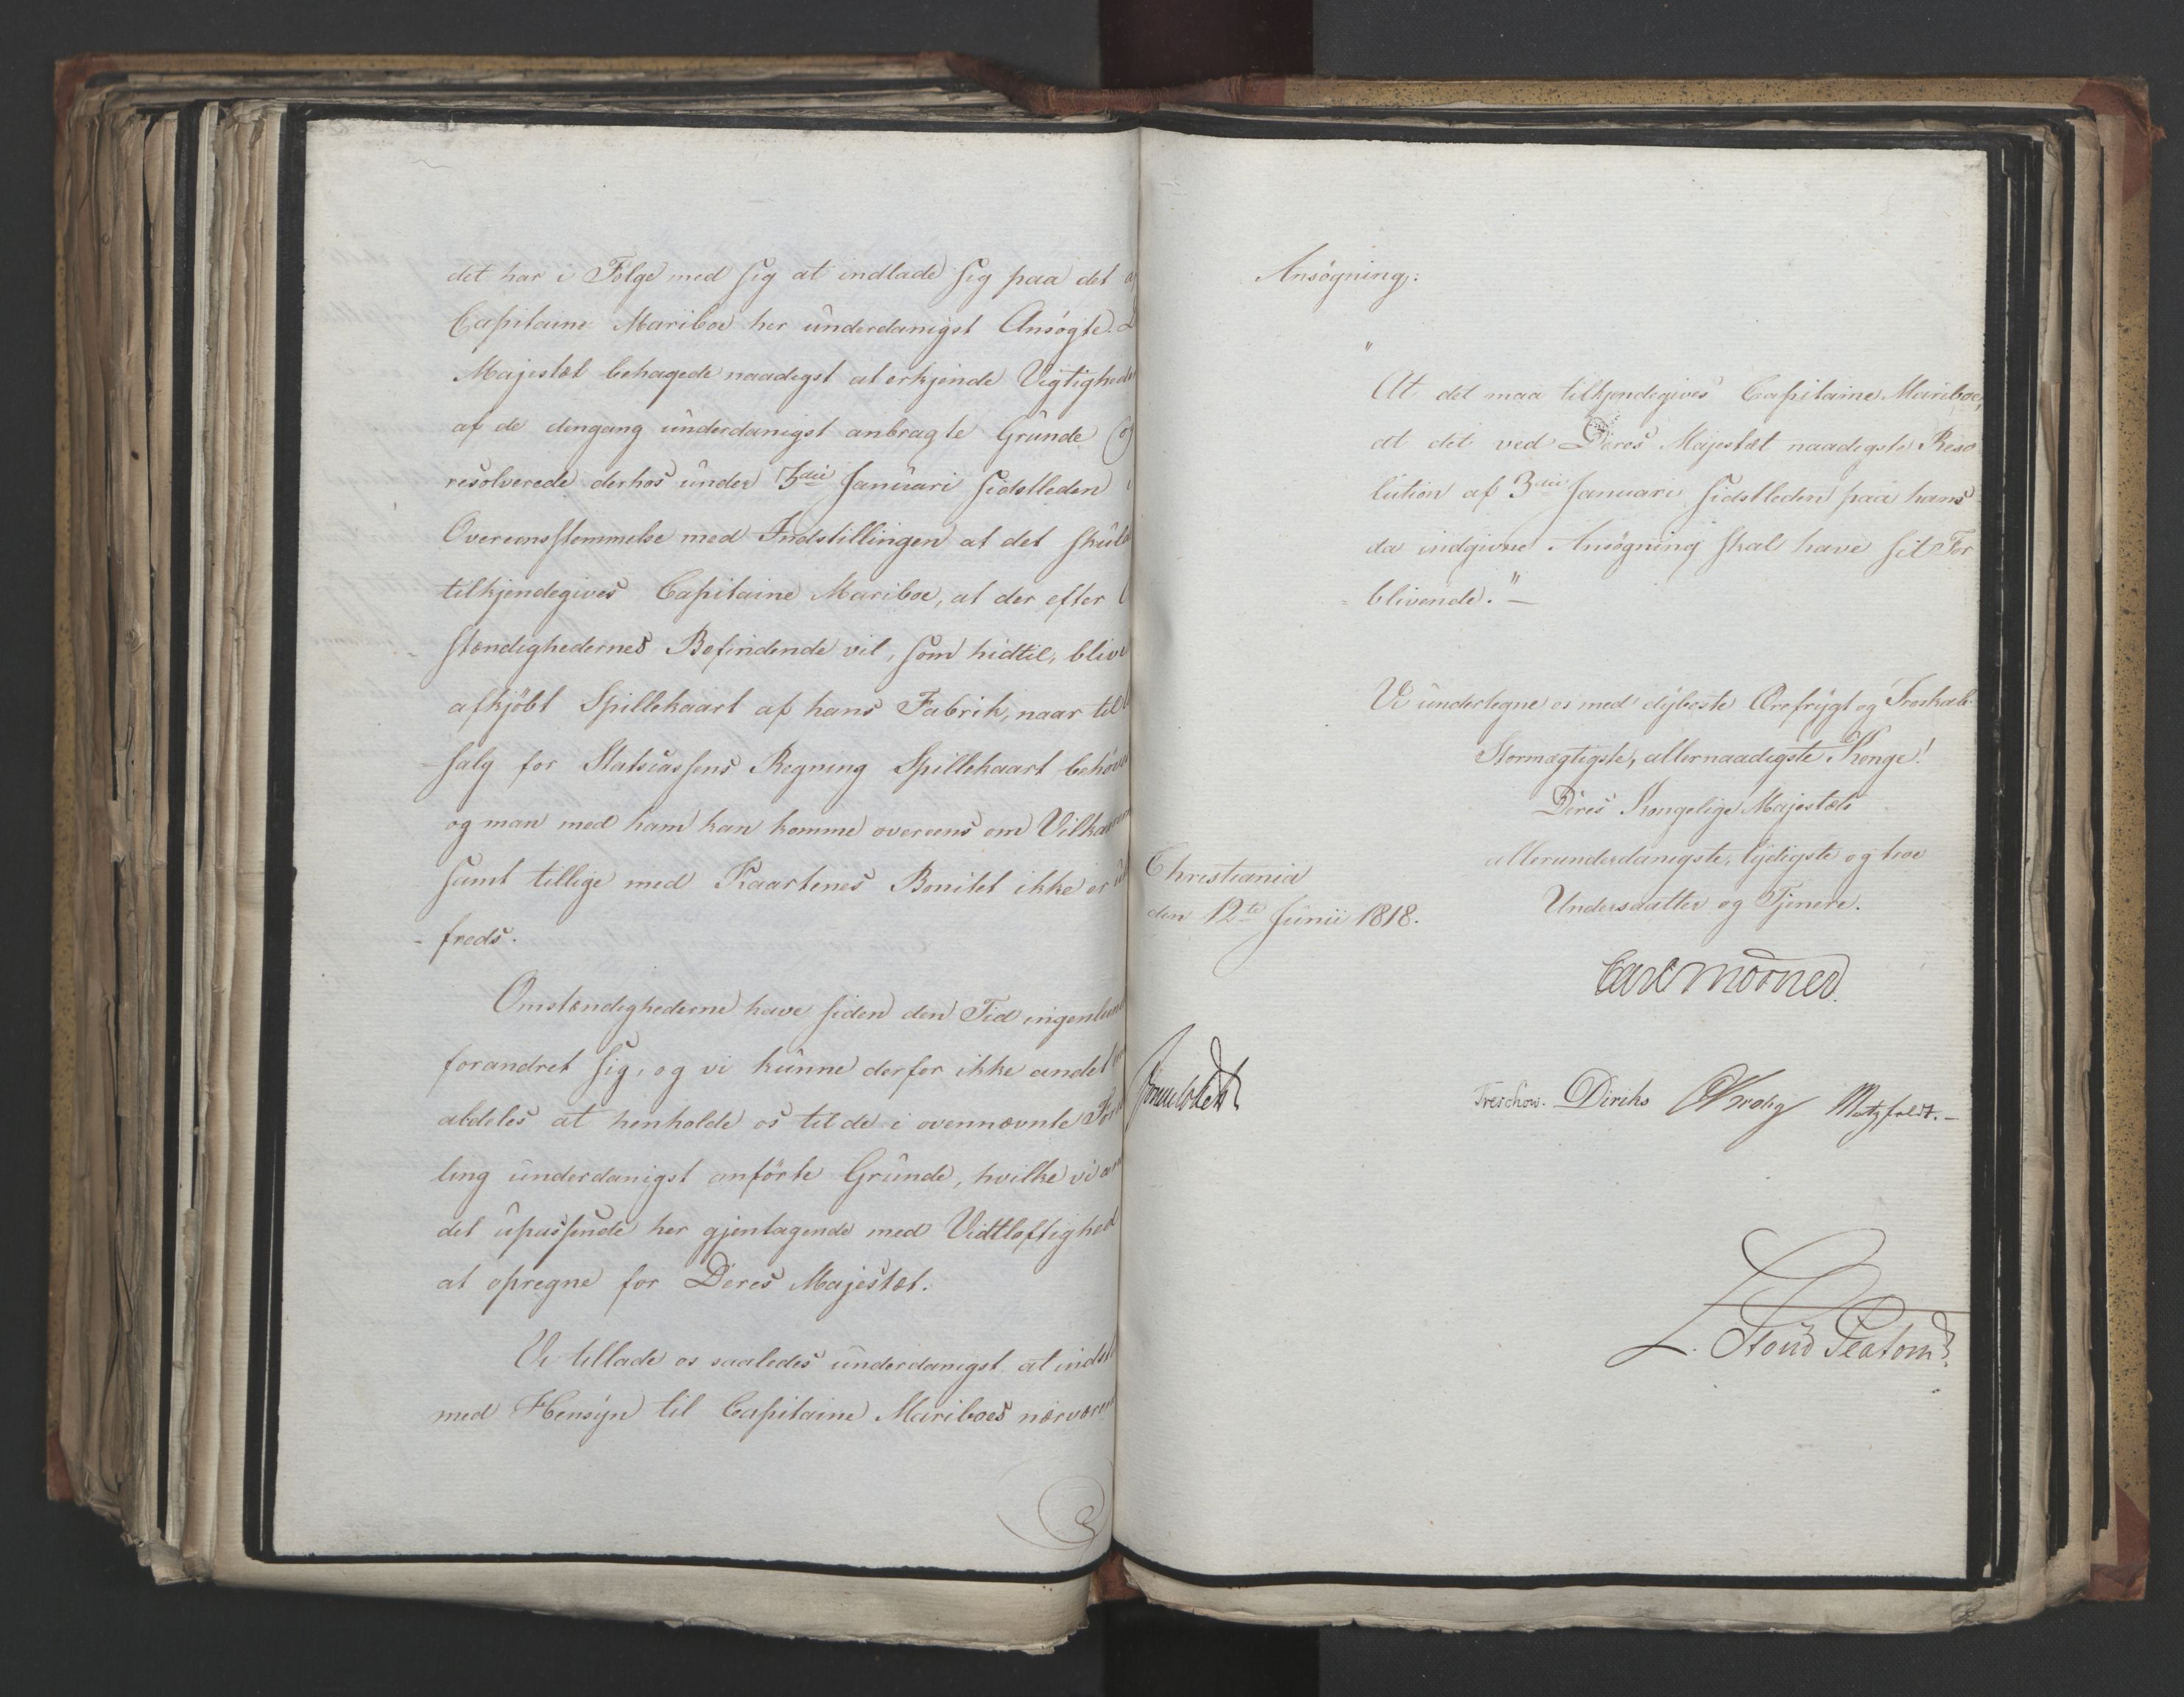 det har i Følge med sig at indlade sig paa det
Capitaine Mariboe her underdanigst Ansøgte.
Majestæt behagede naadigst at erkjende Vigtighede
af de dengang underdanigst anbragte Grunde og
resolverede derhos under 3die Januari sidstleden i
Overeensstemmelse med Indstillingen at det skuld
tilkjendegives Capitaine Mariboe, at der efter
stændighedernes Befindende vil, som hidtil, blive
afkjøbt Spillekaart af hans Fabrik, naar til
salg for Statscassens Regning Spillekaart behøve
og man med ham kan komme overeens om Vilkaarene
samt tillige med Kaartenes Bonitet ikke er
freds.
Omstændighederne have siden den Tid ingenlun
forandret sig, og vi kunne derfor ikke andet
aldeles at henholde os til de i ovennævnte
ling underdanigst anførte Grunde, hvilke vi
det upassende her gjentagende med Vidtløftighed
at opregne for Deres Majestæt.
Vi tillade os saaledes underdanigst at indst
med Hensyn til Capitaine Mariboes nærværen
Ansøgning:
"At det maa tilkjendegives Capitaine Mariboe,
at det ved Deres Majestæt naadigste Reso
lution af 3die Januari sidstleden paa hans
da indgivne Ansøgning skal have sit For
blivende." —
Vi undertegne os med dybeste Ærefrygt og Troskab
Stormægtigste, allernaadigste Konge!
Deres Kongelige Majestæts
allerunderdanigste, lydigste og troe
Undersaatter og Tjenere.
Christiania
den 12te Junii 1818.
Carl Mörner.
Treschow. Diriks Krohg Motzfeldt. —
L. Stoud Platou